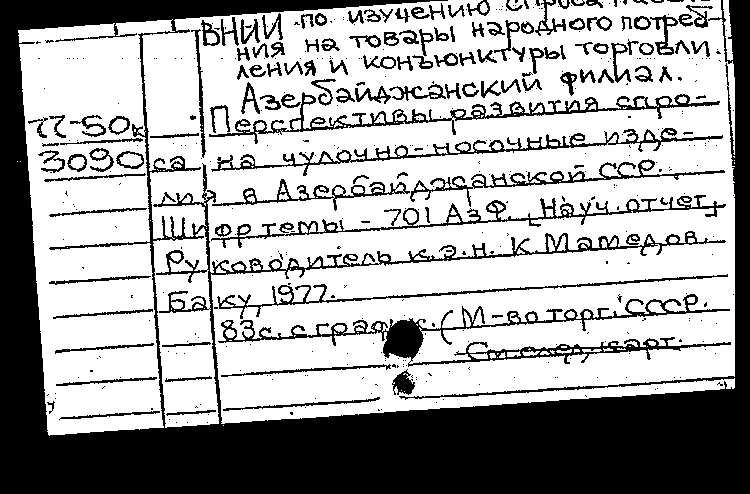 ВНИИ по изучению спроса населе-
ния на товары народного потреб-
ления и конъюнктуры торговли.
Азербайджанский филиал.
77-50к Перспективы развития спро-
3090 са на чулочно-носочные изде-
лия в Азербайджанской ССР.
Шифр темы - 701 АзФ. [Науч. отчет]
Руководитель к.э.н. К. Мамедов.
Баку, 1977.
83с. с график. (М-во торг. СССР.
См. след. карт.